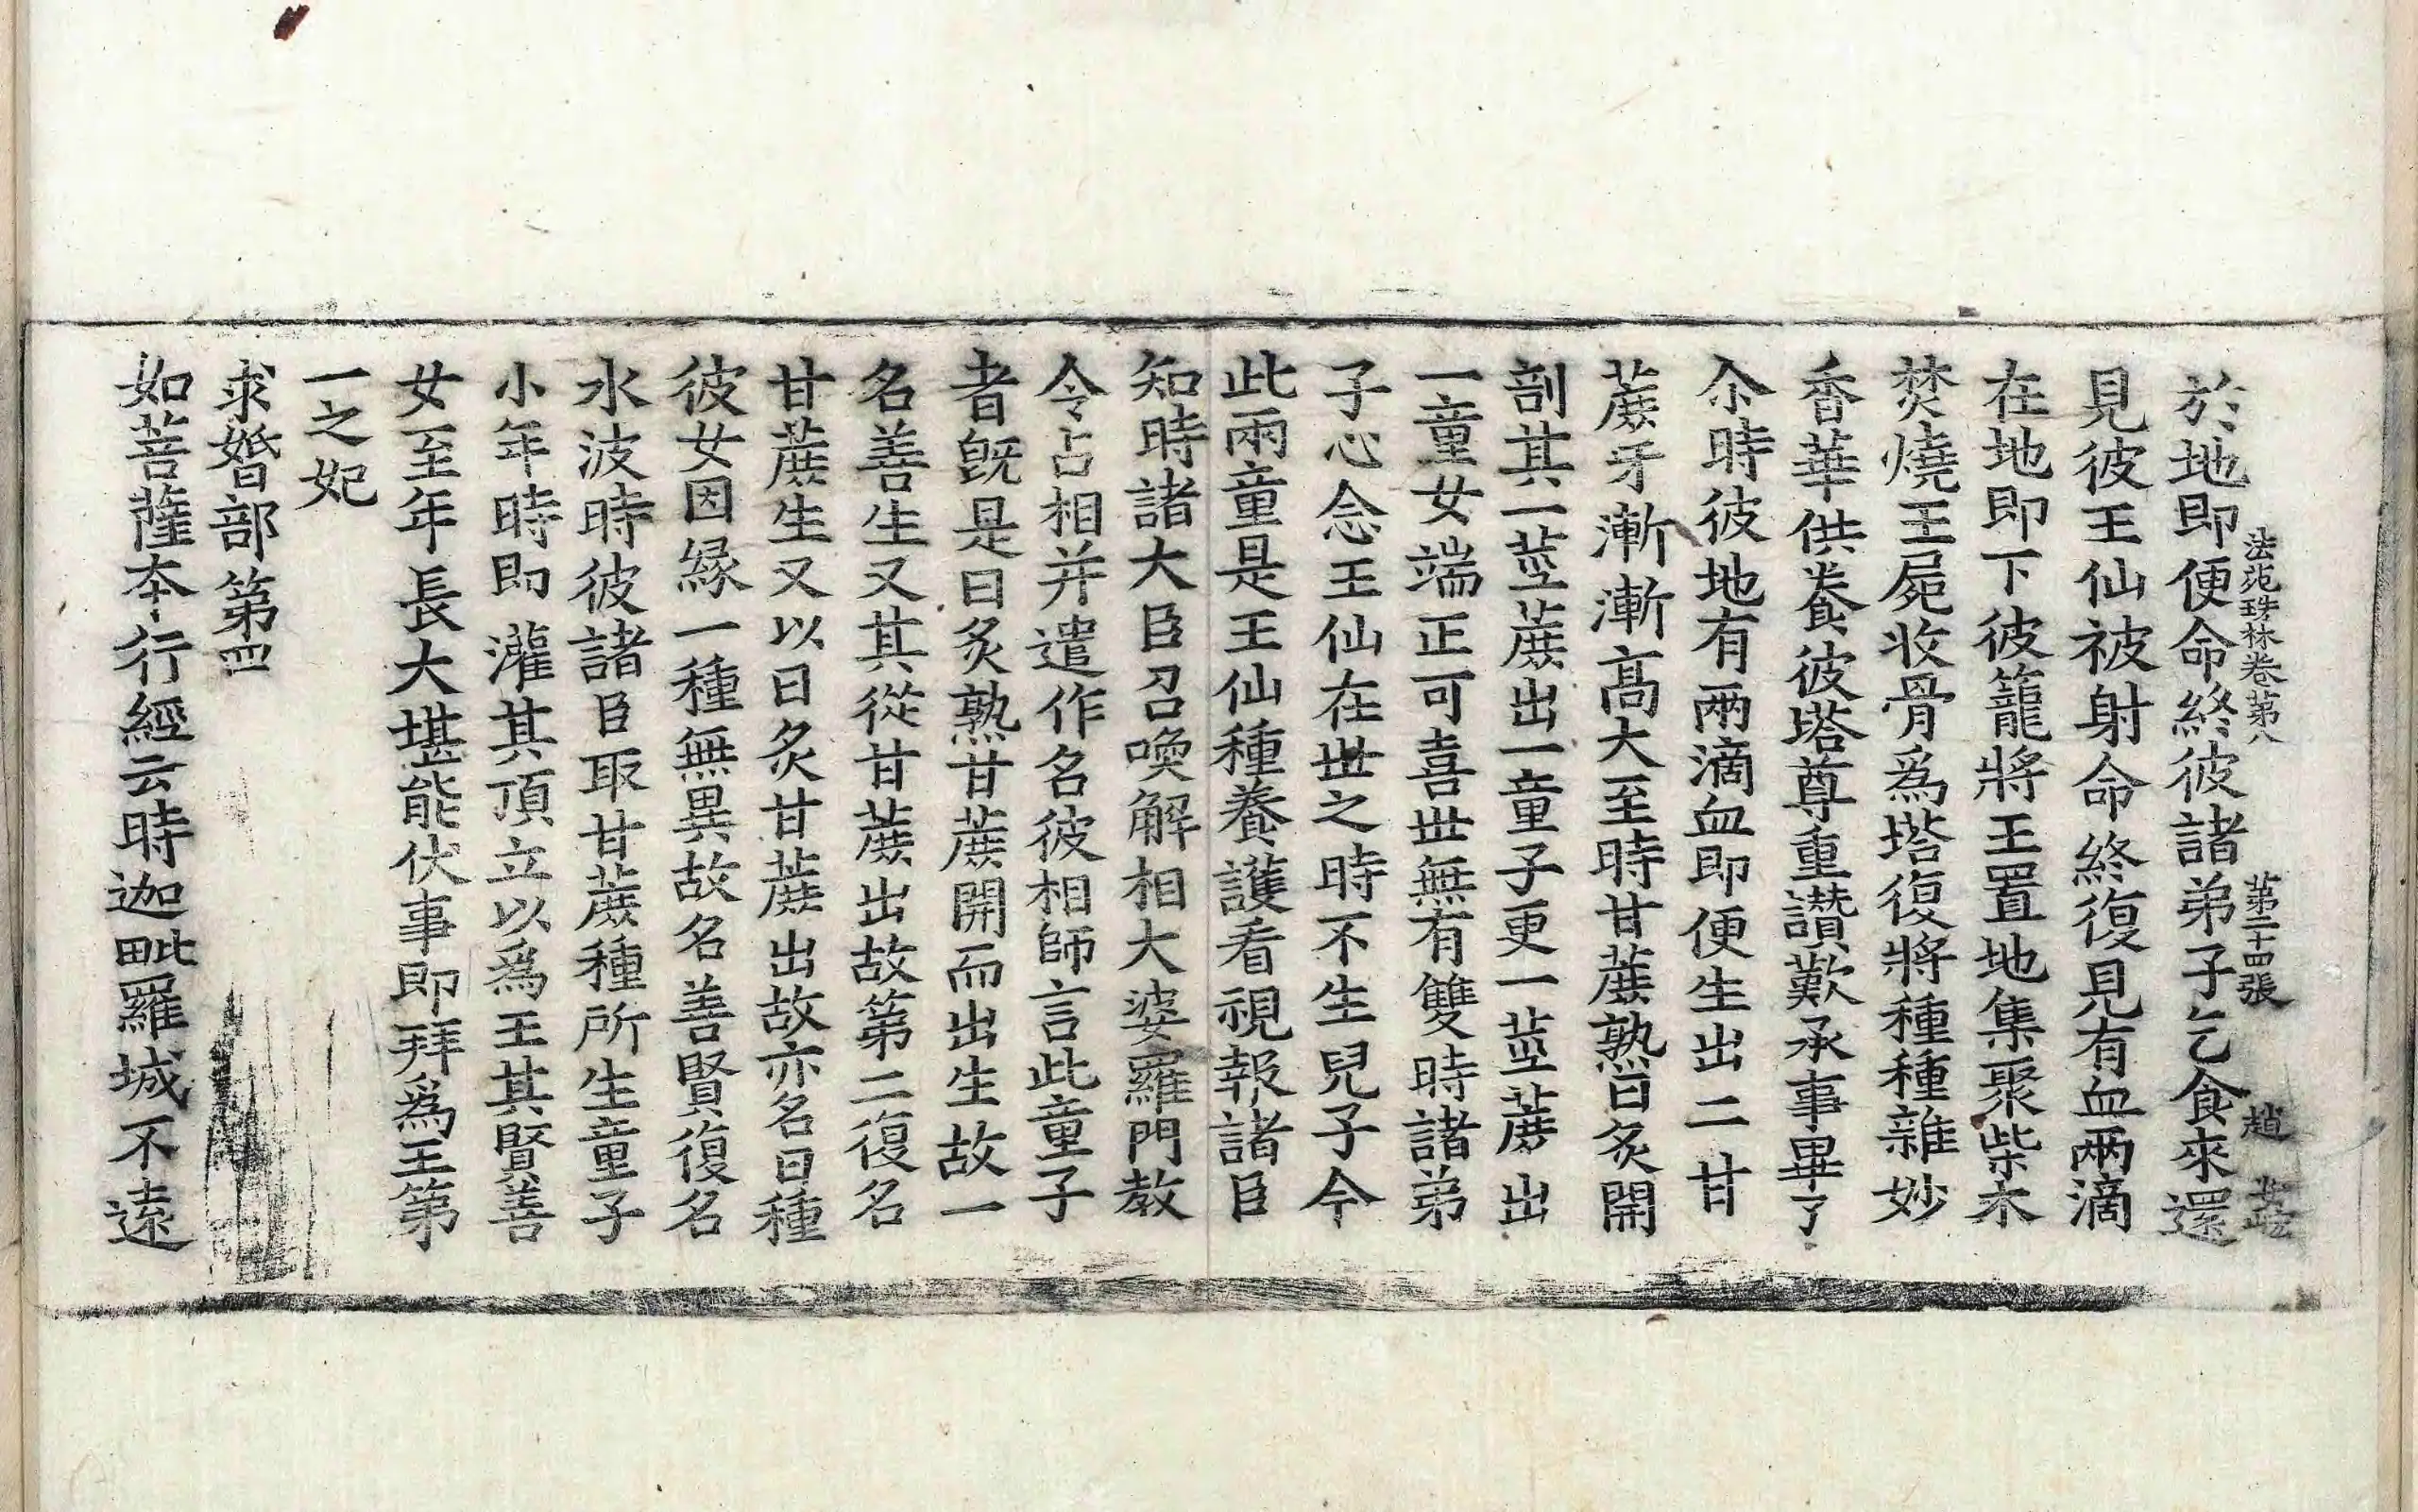 法苑珠林卷第八 第二十四張 趙
於地即便命終彼諸弟子乞食來還
見彼王仙被射命終復見有血兩滴
在地即下彼籠將王置地集聚柴木
焚燒王屍收骨爲塔復將種種雜妙
香華供養彼塔尊重讚歎承事畢了
尒時彼地有兩滴血即便生出二甘
蔗牙漸漸高大至時甘蔗熟日炙開
剖其一莖蔗出一童子更一莖蔗出
一童女端正可喜世無有雙時諸弟
子心念王仙在世之時不生兒子今
此兩童是王仙種養護看視報諸臣
知時諸大臣召喚解相大婆羅門教
令占相并遣作名彼相師言此童子
者旣是日炙熟甘蔗開而出生故一
名善生又其從甘蔗出故第二復名
甘蔗生又以日炙甘蔗出故亦名日種
彼女因緣一種無異故名善賢復名
水波時彼諸臣取甘蔗種所生童子
小年時即灌其頂立以爲王其賢善
女至年長大堪能伏事即拜爲王第
一之妃
求婚部第四
如菩薩本行經云時迦毗羅城不遠